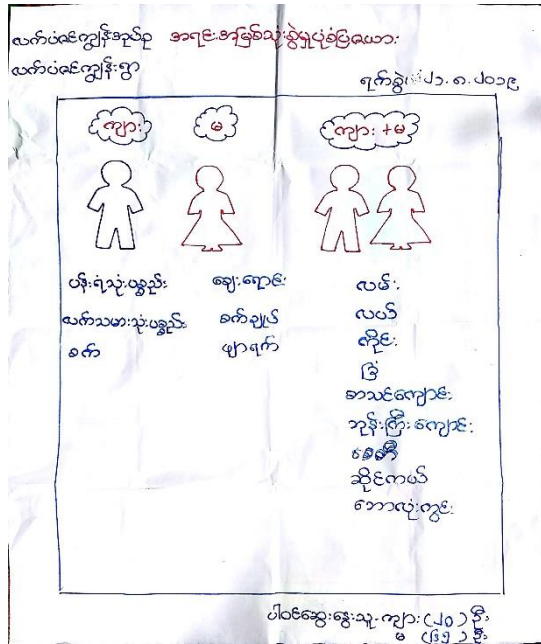 လက်ပံဝင်ကျွန်းအုပ်စု အရင်းအမြစ်သုံးစွဲမှုပုံစံပြဇယား
လက်ပံဝင်ကျွန်းရွာ
ရက်စွဲ၊ ၂၁.၈.၂၀၁၉
ကျား မ ကျား+မ
ပန်းရံသုံးပစ္စည်း ချေးရောင်း လမ်း
လက်သမားသုံးပစ္စည်း စက်ချုပ် လယ်
စက် ဖျာရက် ကိုင်း
ခြံ
စာသင်ကျောင်း
ဘုန်းကြီးကျောင်း
စေတီ
ဆိုင်ကယ်
ဘောလုံးကွင်း
ပါဝင်ဆွေးနွေးသူ ကျား (၂၀) ဦး
မ (၆၅) ဦး